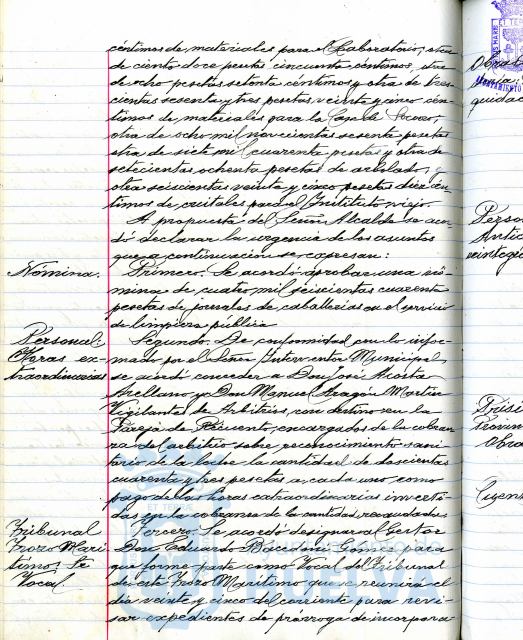 céntimos de materiales para el Laboratorio, otra
de ciento doce pesetas cincuenta céntimos, otra
de ocho pesetas setenta céntimos y otra de tres-
cientas sesenta y tres pesetas veinte y cinco cén-
timos de materiales para la Casa de Socorro;
otra de ocho mil novecientas sesenta pesetas
otra de siete mil cuarenta pesetas y otra de
setecientas ochenta pesetas de arbolado;
otra seiscientas veinte y cinco pesetas diez cén-
timos de cristales para el Instituto viejo.
A propuesta del Señor Alcalde se acor-
dó declarar la urgencia de los asuntos
que a continuación se expresan:
Nómina.
Primero. Se acordó aprobar una nó-
mina de cuatro mil seiscientas cuarenta
pesetas de jornales de caballerías en el servicio
de limpieza pública
Personal
Horas ex-
traordinarias
Segundo. De conformidad con lo infor-
mado por el Señor Interventor Municipal,
se acordó conceder a Don José Acosta
Arellano y Don Manuel Aragón Martín
Vigilantes de Arbitrios, con destino en la
Pareja de encargados de la cobran-
za del arbitrio sobre reconocimiento sani-
tario de la leche la cantidad de doscientas
cuarenta y tres pesetas a cada uno como
pago de las horas extraordinarias inverti-
das en la cobranza de la cantidad recaudada
Tribunal
Trozo Marí
timo. Se
Vocal
Tercero. Se acordó designar al Gestor
Don Eduardo Gómez para
que forme parte como Vocal del Tribunal
de este Trozo Marítimo que se reunirá el
día veinte y cinco del corriente para revi-
sar expedientes de prórroga de incorpora
HUELVA